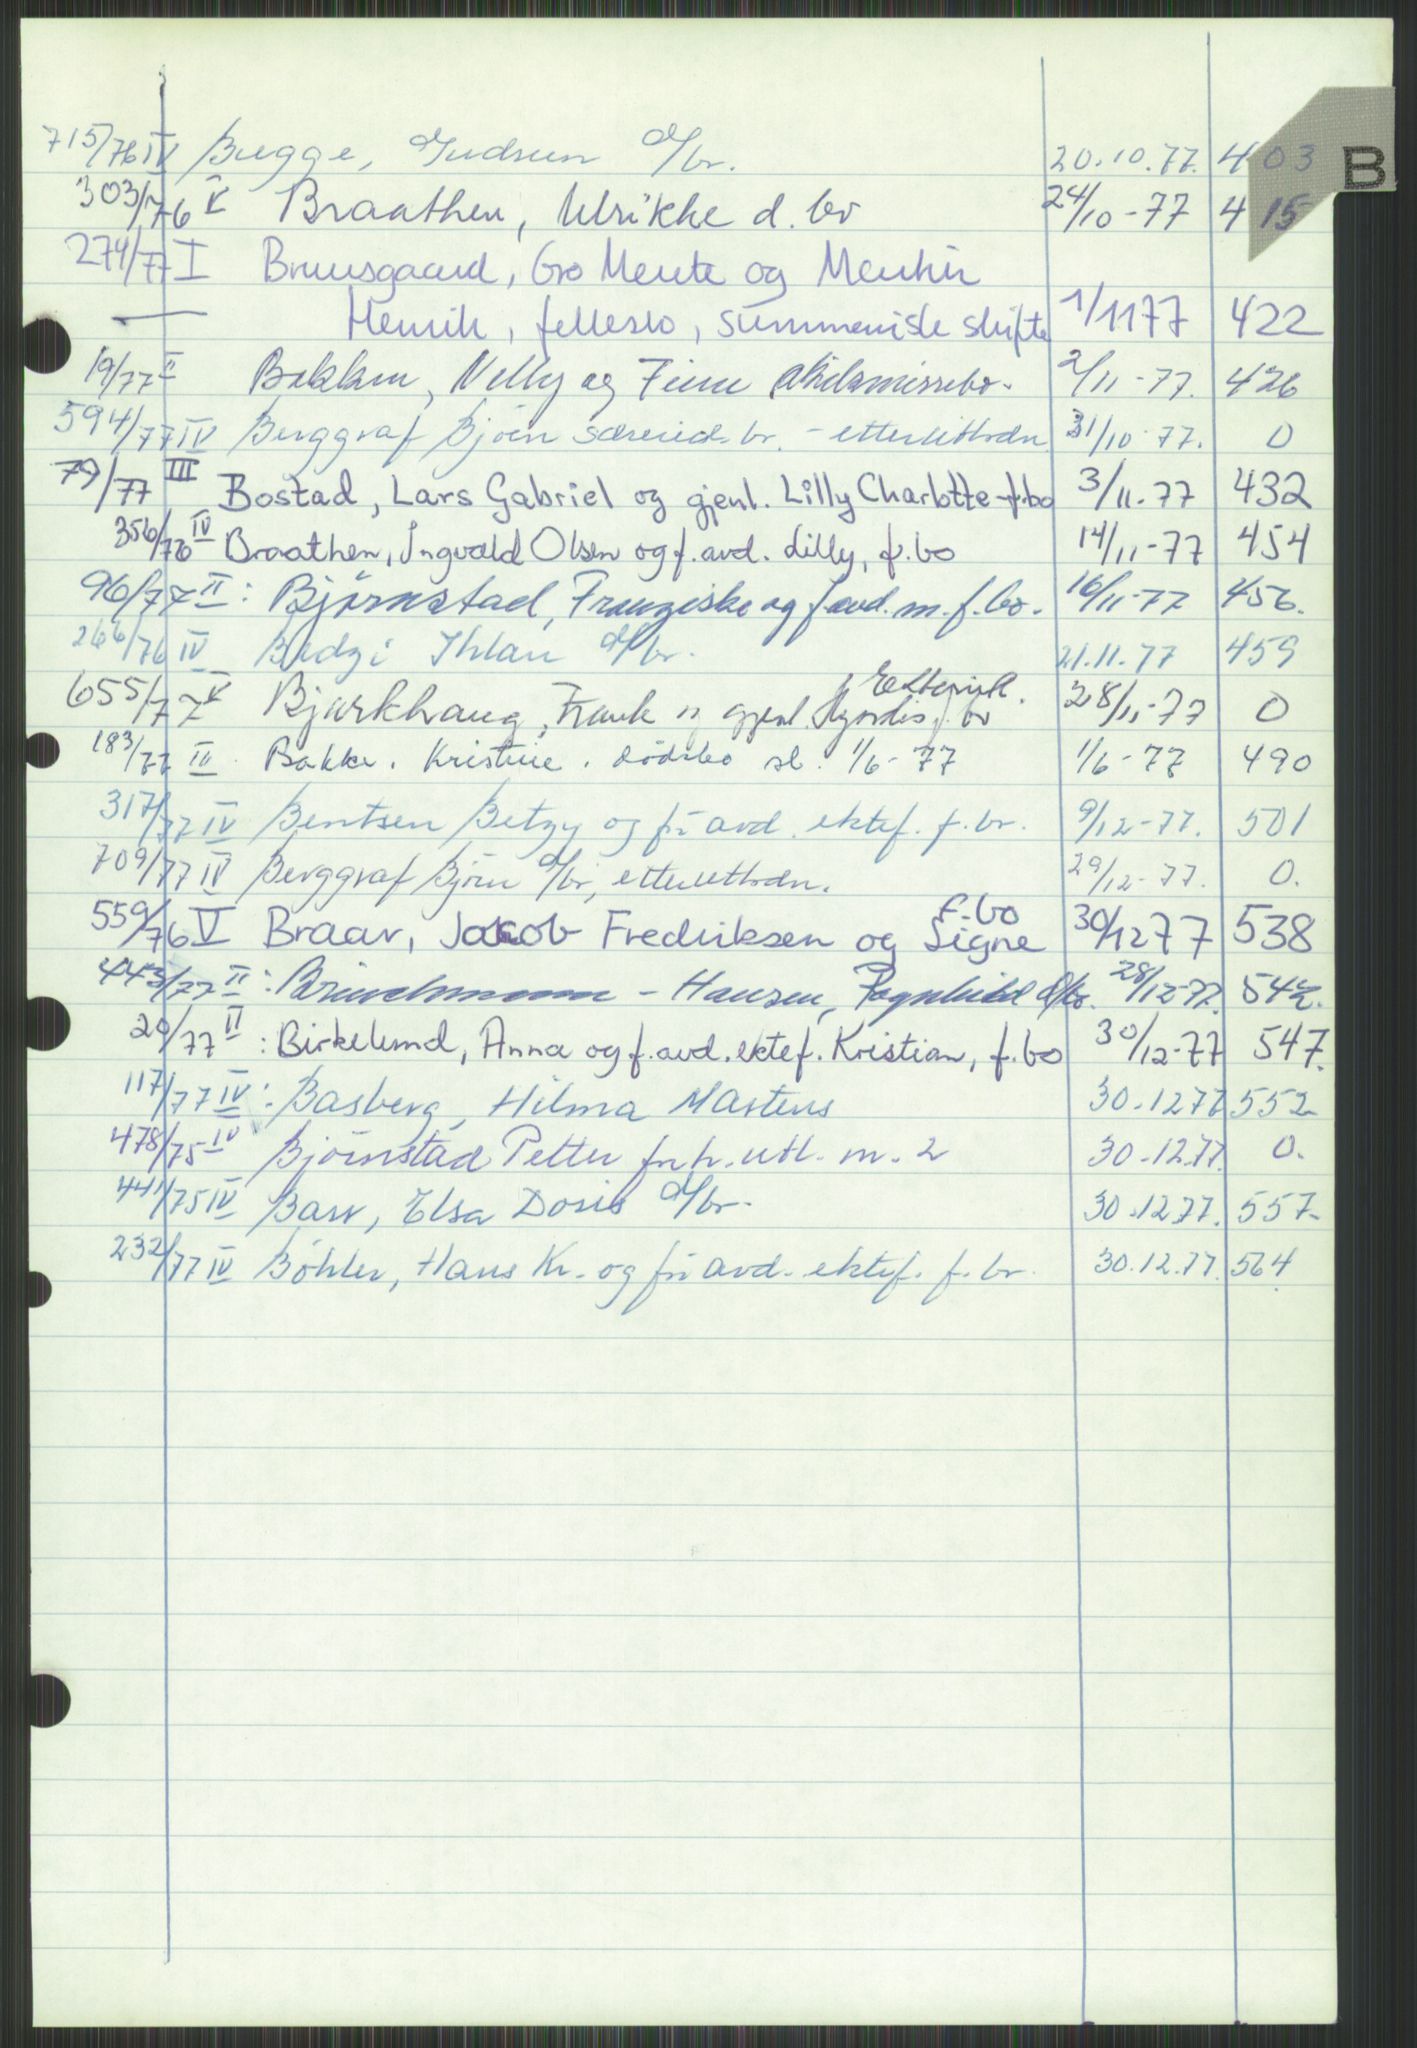 B
715/76 IV Bugge, Gudrun d/br. 20.10.77. 403
303/76 V Braathen, Ulrikke d. bo 24/10-77 415
274/77 I Bruusgaard, Gro Merete og Menkin
— Henrik, fellesbo, summarisk skifte 1/11 77 422
19/77 II Bakken, Nelly og Finn 2/11-77. 426
594/77 IV Berggraf Bjørn særeied. br. - etterutlodn. 31/10-77. 0
79/77 III Bostad, Lars Gabriel og gjenl. Lilly Charlotte f.bo 3/11-77 432
356/76 IV Braathen, Ingvald Olsen og f. avd. Lilly, f. bo 14/11-77 454
96/77 II : Bjørnstad, Franziska og f. avd. m. f. bo. 16/11-77 456.
266/76 IV Ihlan d/br. 21.11.77 459
Etterutl.
655/77 V Bjarkhaug, Frank og gjenl. Hjørdis f. bo 28/11-77 0
183/77 III Bakke. Kristine. dødsbo sl. 1/6-77 1/6-77 490
317/77 IV Bentsen Betzy og fri avd. ektef. f. br. 9/12-77. 501
709/77 IV Berggraf Bjørn d/br, etterutlodn. 29/12-77. 0.
f.bo
559/76 V Braar, Jakob Fredriksen og Signe 30/12 77 538
443/77 II : Brinchmann - Hansen, Ragnhild d/bo. 28/12-77. 542.
20/77 II : Birkelund, Anna og f. avd. ektef. Kristian, f. bo 30/12-77 547.
117/77 IV : Basberg, Hilma Martens 30.12 77 552
478/75 IV Bjørnstad Petter frh. utl. m. 2 30.12.77. 0.
441/75 IV Barr, Elsa Doris d/br. 30.12.77. 557.
232/77 IV Bøhler, Hans Kr. og fri avd. ektef. f. br. 30.12.77. 564.